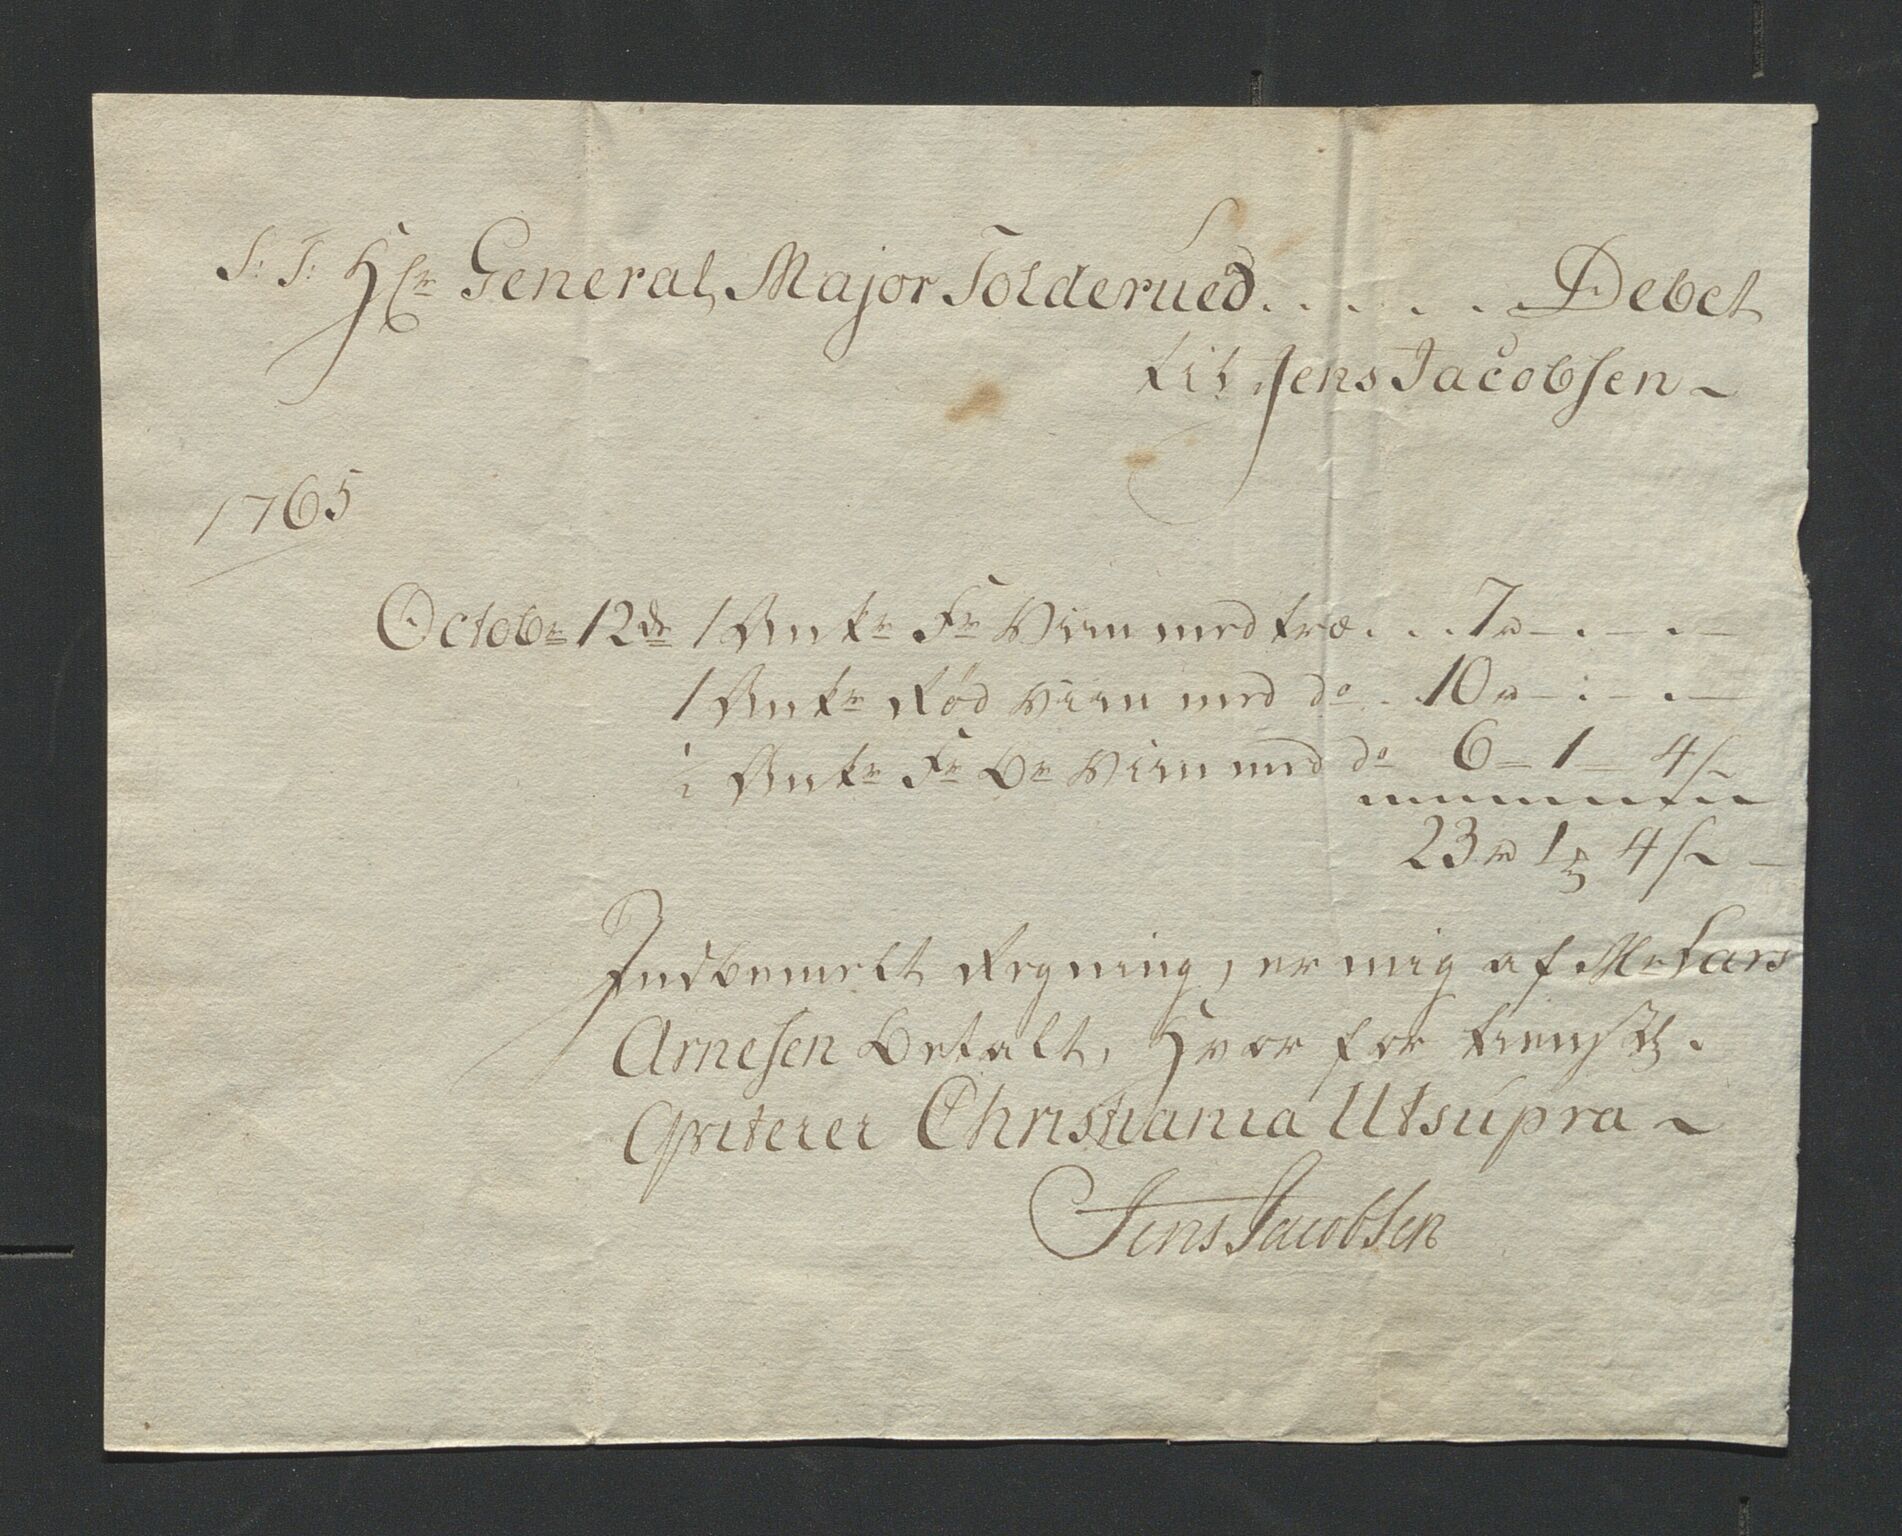 S: T: Hr General Major Tolderued. . . . . . Debet
til Jens Jacobsen ~
1765
Octobr 12de 1 Anker Fr Viin med træ. . . 7 rd — . — . —
1 Anker Rød Viin med do . . 10 rd — : — . —
1 Anker Fr Br Viin med do 6 — 1 — 4 s
23 rd 1 4 s —
Indbemelt Regning, er mig af Mr Lars
Arnesen betalt, Hvor for tienstl.
Qviterer Christiania Ut supra ~
Jens Jacobsen